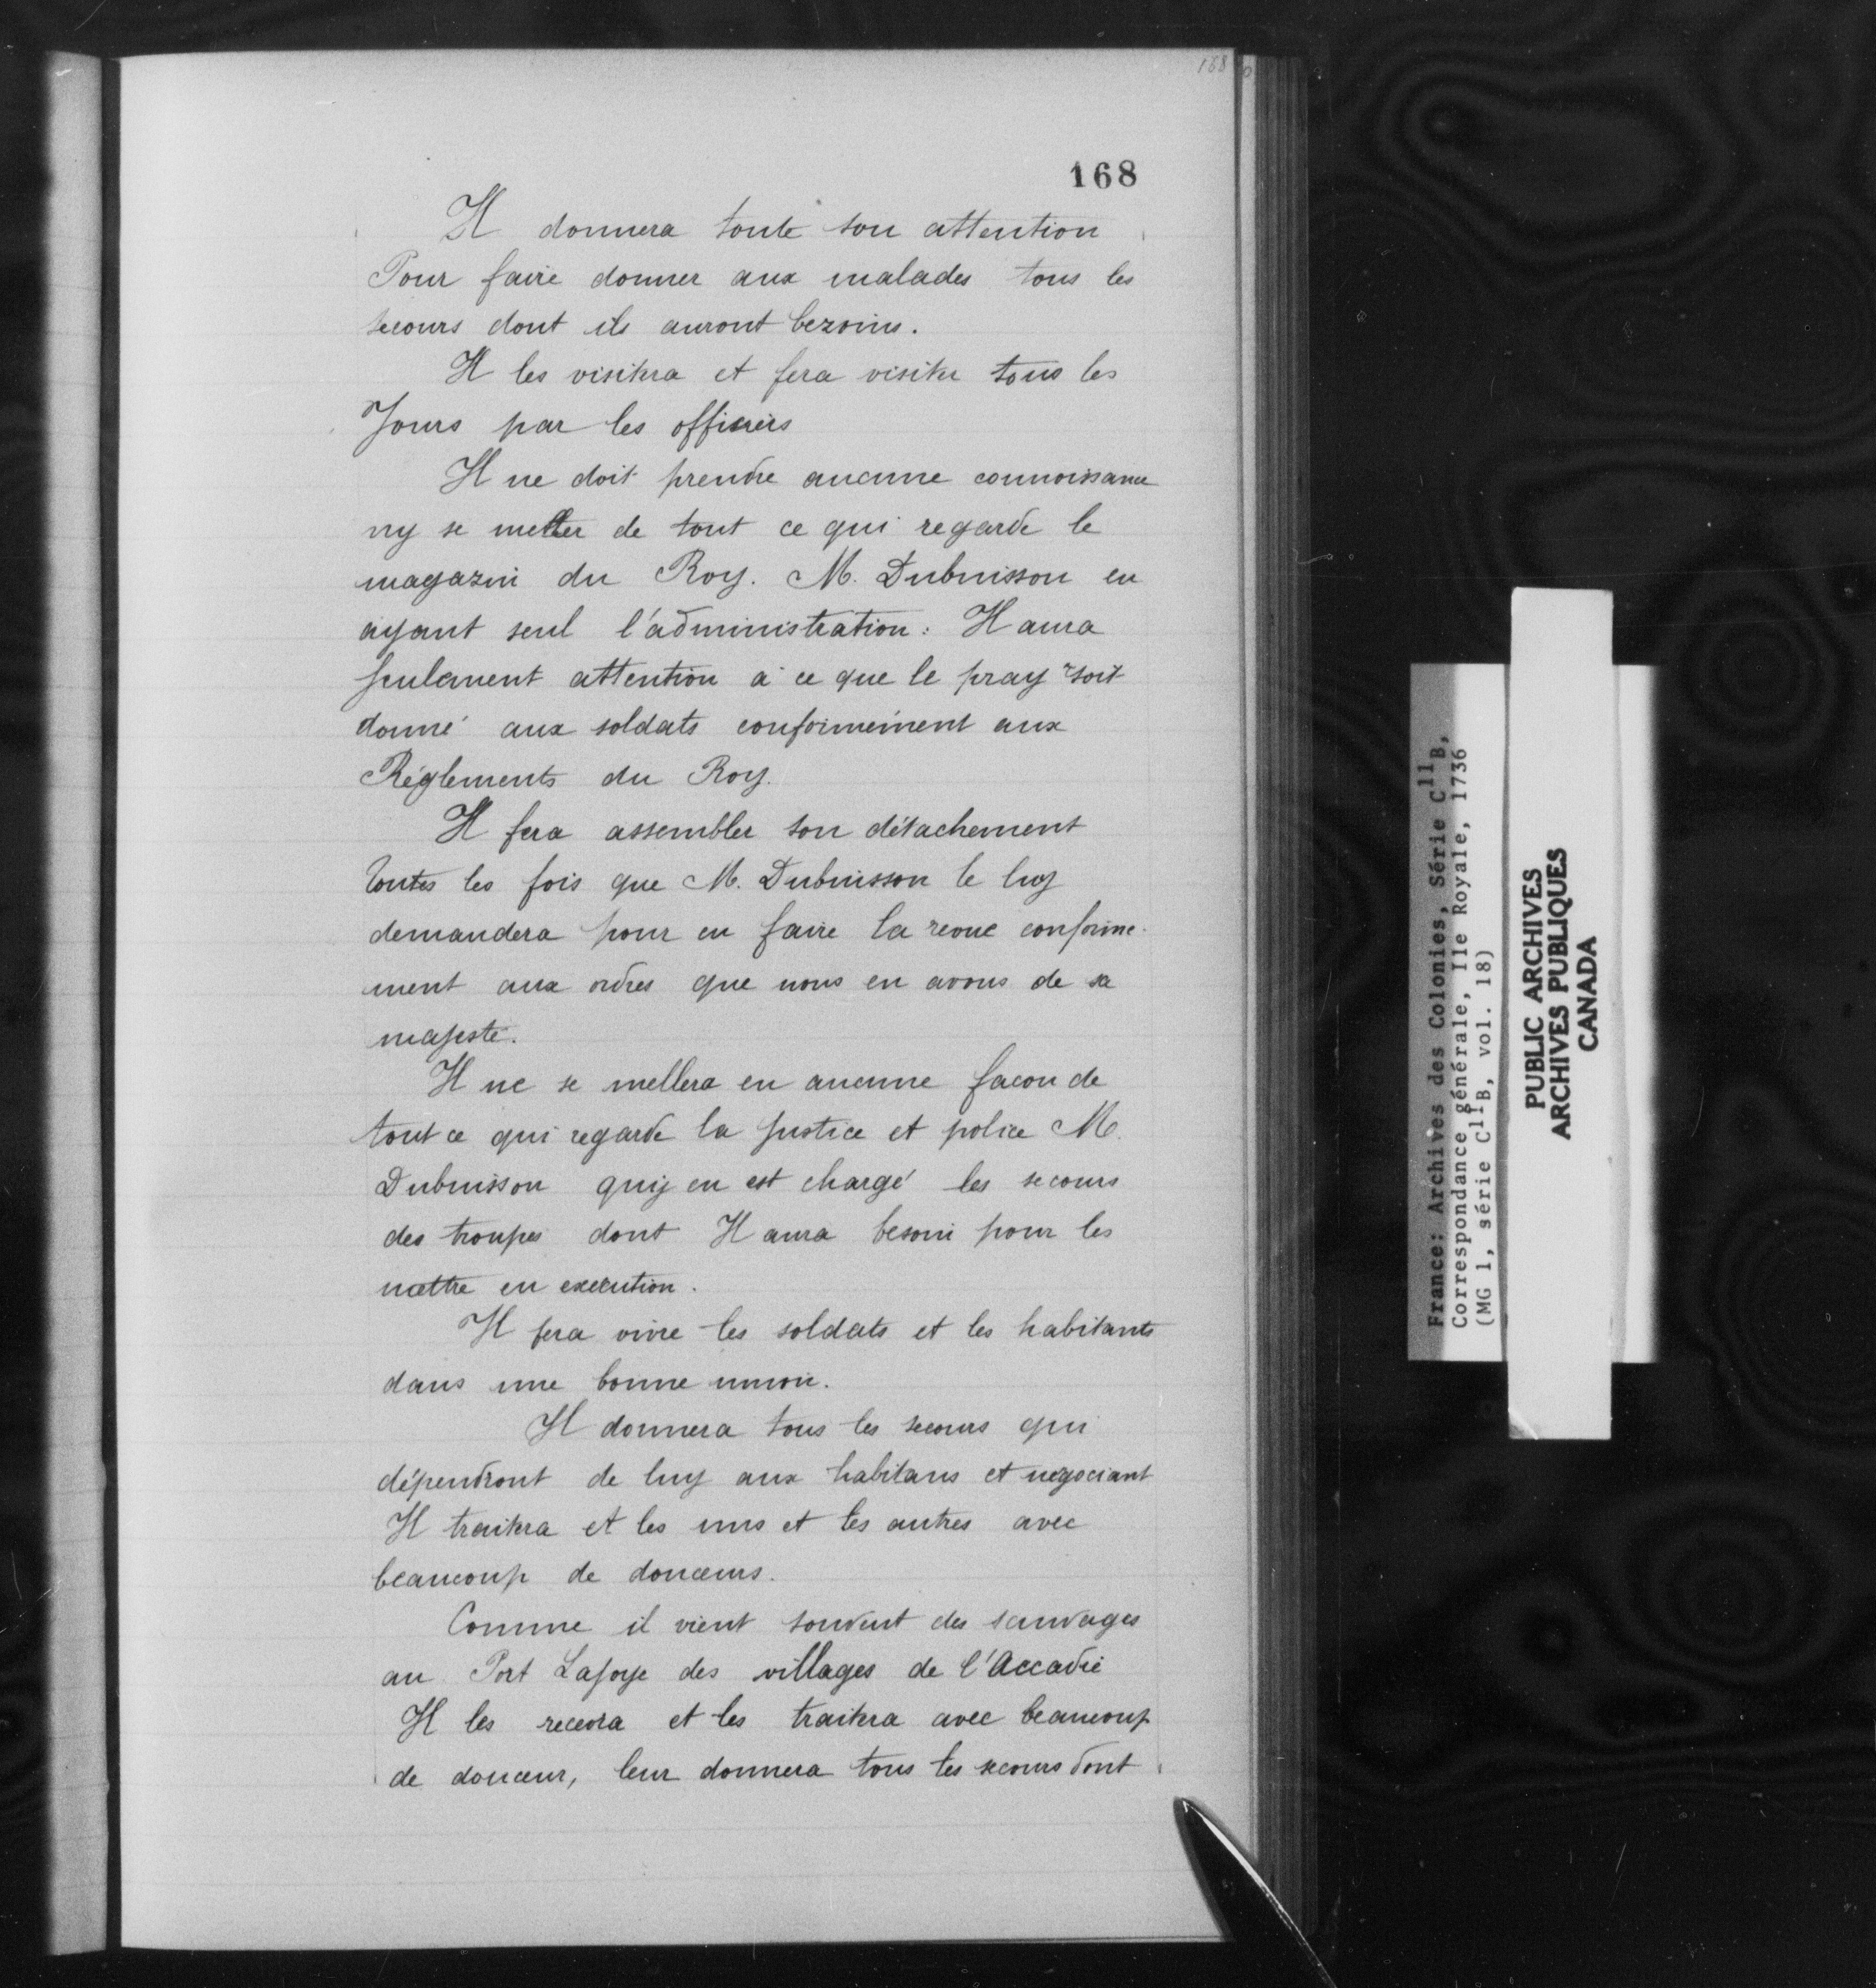 168
168
Il donnera toute son attention
Pour faire donner aux malades tous les
secours dont ils auront bezoins.
Il les visitera et fera visiter tous les
Jours par les officiers
Il ne doit prendre aucune connoissance
ny se meller de tout ce qui regarde le
magazin du Roy. M. Dubuisson en
ayant seul l'administration. Il aura
seulement attention a ce que le pray soit
donné aux soldats conformément aux
Réglements du Roy.
Il fera assembler son détachement
toutes les fois que M. Dubuisson le luy
demandera pour en faire la revue conforme-
ment aux ordres que nous en avons de sa
majesté.
Il ne se mellera en aucune facon de
tout ce qui regarde la justice et police M.
Dubuisson quij en est chargé les secours
des troupes dont Il aura besoin pour les
mettre en execution.
Il fera vivre les soldats et les habitants
dans une bonne union.
Il donnera tous les secours qui
dépendront de luy aux habitans et negociant
Il traitera et les uns et les autres avec
beaucoup de douceurs.
Comme il vient souvent des sauvages
au Port Lajoye des villages de l'Accadie
Il les recevra et les traitera avec beaucoup
de douceur, leur donnera tous les secours dont
France: Archives des Colonies, Série C11B,
Correspondance générale, Ile Royale, 1736
(MG 1, série C11B, vol. 18)
PUBLIC ARCHIVES
ARCHIVES PUBLIQUES
CANADA